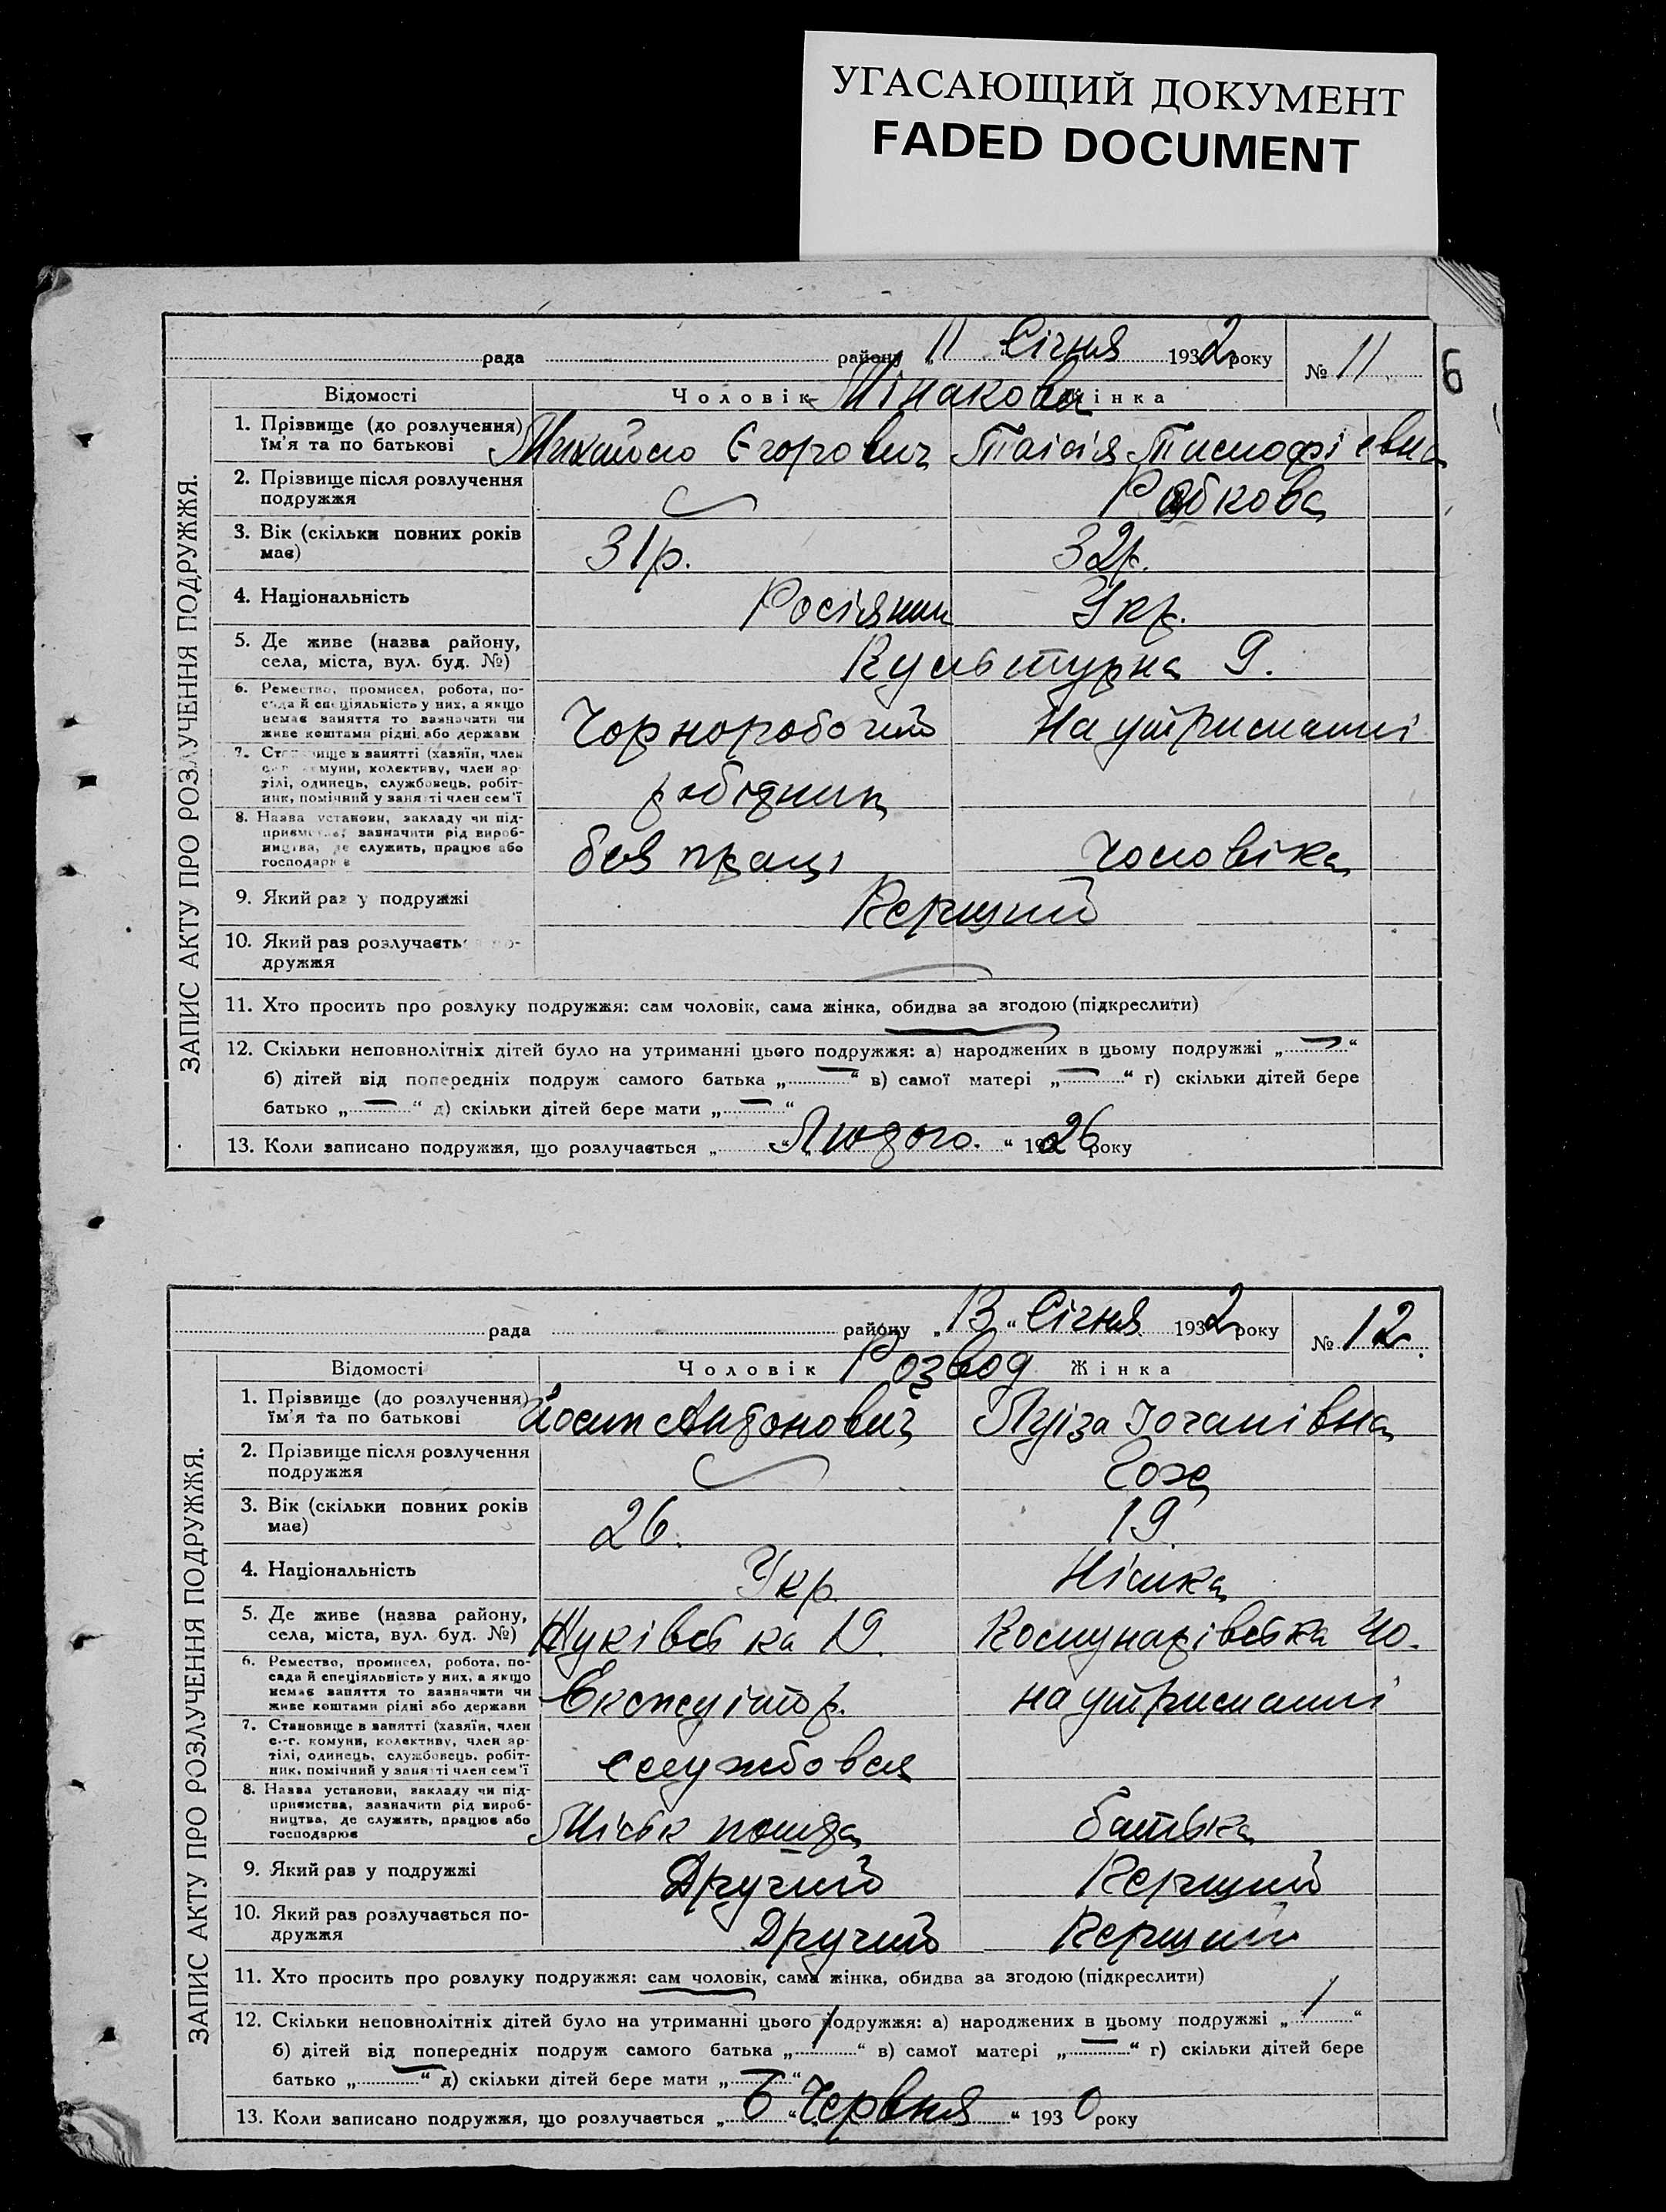 УГАСАЮЩИЙ ДОКУМЕНТ
FADED DOCUMENT
6
рада района „ 11 Січня 1932 року № 11
Відомості Чоловік Жінка
Мінакови
1. Прізвище (до розлучення) ім'я та по батькові Михайло Єгорович Таісія Тимофієвна
2. Прізвище після розлучення подружжя Рябкова
3. Вік (скільки повних років має) 31р. 32р.
4. Національність Росіянин Укр.
5. Де живе (назва району, села, міста, вул. буд. №) Культурна 9.
6. Ремество, промисел, робота, посада й спеціяльність у них, а якщо немає заняття то зазначити чи живе коштами рідні або держави Чорноробочий На утриманні
7. Становище в занятті (хазяїн, член комуни, колективу, член артілі, одинець, службовець, робітник, помічний у занятті член сем'ї робідник
8. Назва установи, закладу чи підприємства, зазначити рід виробництва, де служить, працює або господарює без праці Чоловіка
9. Який раз у подружжі Перший
10. Який раз розлучається подружжя
11. Хто просить про розлуку подружжя: сам чоловік, сама жінка, обидва за згодою (підкреслити)
12. Скільки неповнолітніх дітей було на утриманні цього подружжя: а) народжених в цьому подружжі „ — “
б) дітей від попередніх подруж самого батька „ — “ в) самої матері „ — “ г) скільки дітей бере
батько „ — “ д) скільки дітей бере мати „ — “
13. Коли записано подружжя, що розлучається „ Людого. “ 1926 року
ЗАПИС АКТУ ПРО РОЗЛУЧЕННЯ ПОДРУЖЖЯ.
рада району „ 13 “ Січня 1932 року № 12.
Відомості Чоловік Жінка
Розвод
1. Прізвище (до розлучення) ім'я та по батькові Йосип Андонович Луіза Іоганівна
2. Прізвище після розлучення подружжя
3. Вік (скільки повних років має) 26. 19.
4. Національність Укр. Німка
5. Де живе (назва району, села, міста, вул. буд. №) 19. Комунарівська 40.
6. Ремество, промисел, робота, посада й спеціяльність у них, а якщо немає заняття то зазначити чи живе коштами рідні або держави Експедітор. на утриманні
7. Становище в занятті (хазяїн, член с.-г. комуни, колективу, член артілі, одинець, службовець, робітник, помічний у занятті член сем'ї службовец
8. Назва установи, закладу чи підприємства, зазначити рід виробництва, де служить, працює або господарює Міськ пошда батька
9. Який раз у подружжі Другий Перший
10. Який раз розлучається подружжя Другий Перший
11. Хто просить про розлуку подружжя: сам чоловік, сама жінка, обидва за згодою (підкреслити)
12. Скільки неповнолітніх дітей було на утриманні цього подружжя: а) народжених в цьому подружжі „ 1 “
б) дітей від попередніх подруж самого батька „ 1 “ в) самої матері „ — “ г) скільки дітей бере
батько „ — “ д) скільки дітей бере мати „ — “
13. Коли записано подружжя, що розлучається „ 6 “ Червня “ 1930 року
ЗАПИС АКТУ ПРО РОЗЛУЧЕННЯ ПОДРУЖЖЯ.